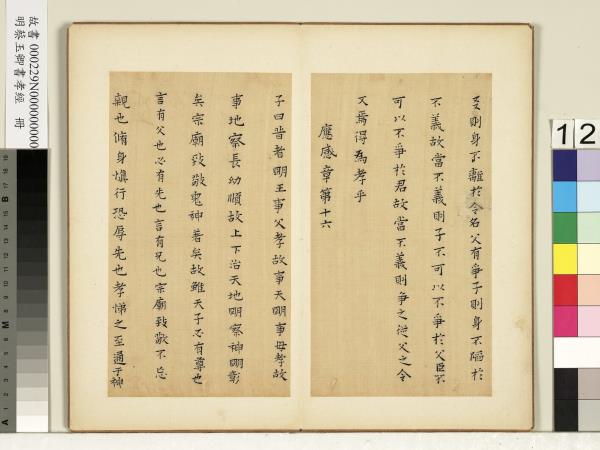 友則身不離於令名父有爭子則身不陷於
不義故當不義則子不可以不爭於父臣不
可以不爭於君故當不義則爭之從父之令
又焉得為孝乎
應感章第十六
子曰昔者明王事父孝故事天明事母孝故
事地察長幼順故上下治天地明察神明彰
矣宗廟致敬鬼神著矣故雖天子必有尊也
言有父也必有先也言有兄也宗廟致敬不忘
親也脩身慎行恐辱先也孝悌之至通于神
故書 000229N000000000
明蔡玉卿書孝經 冊
12